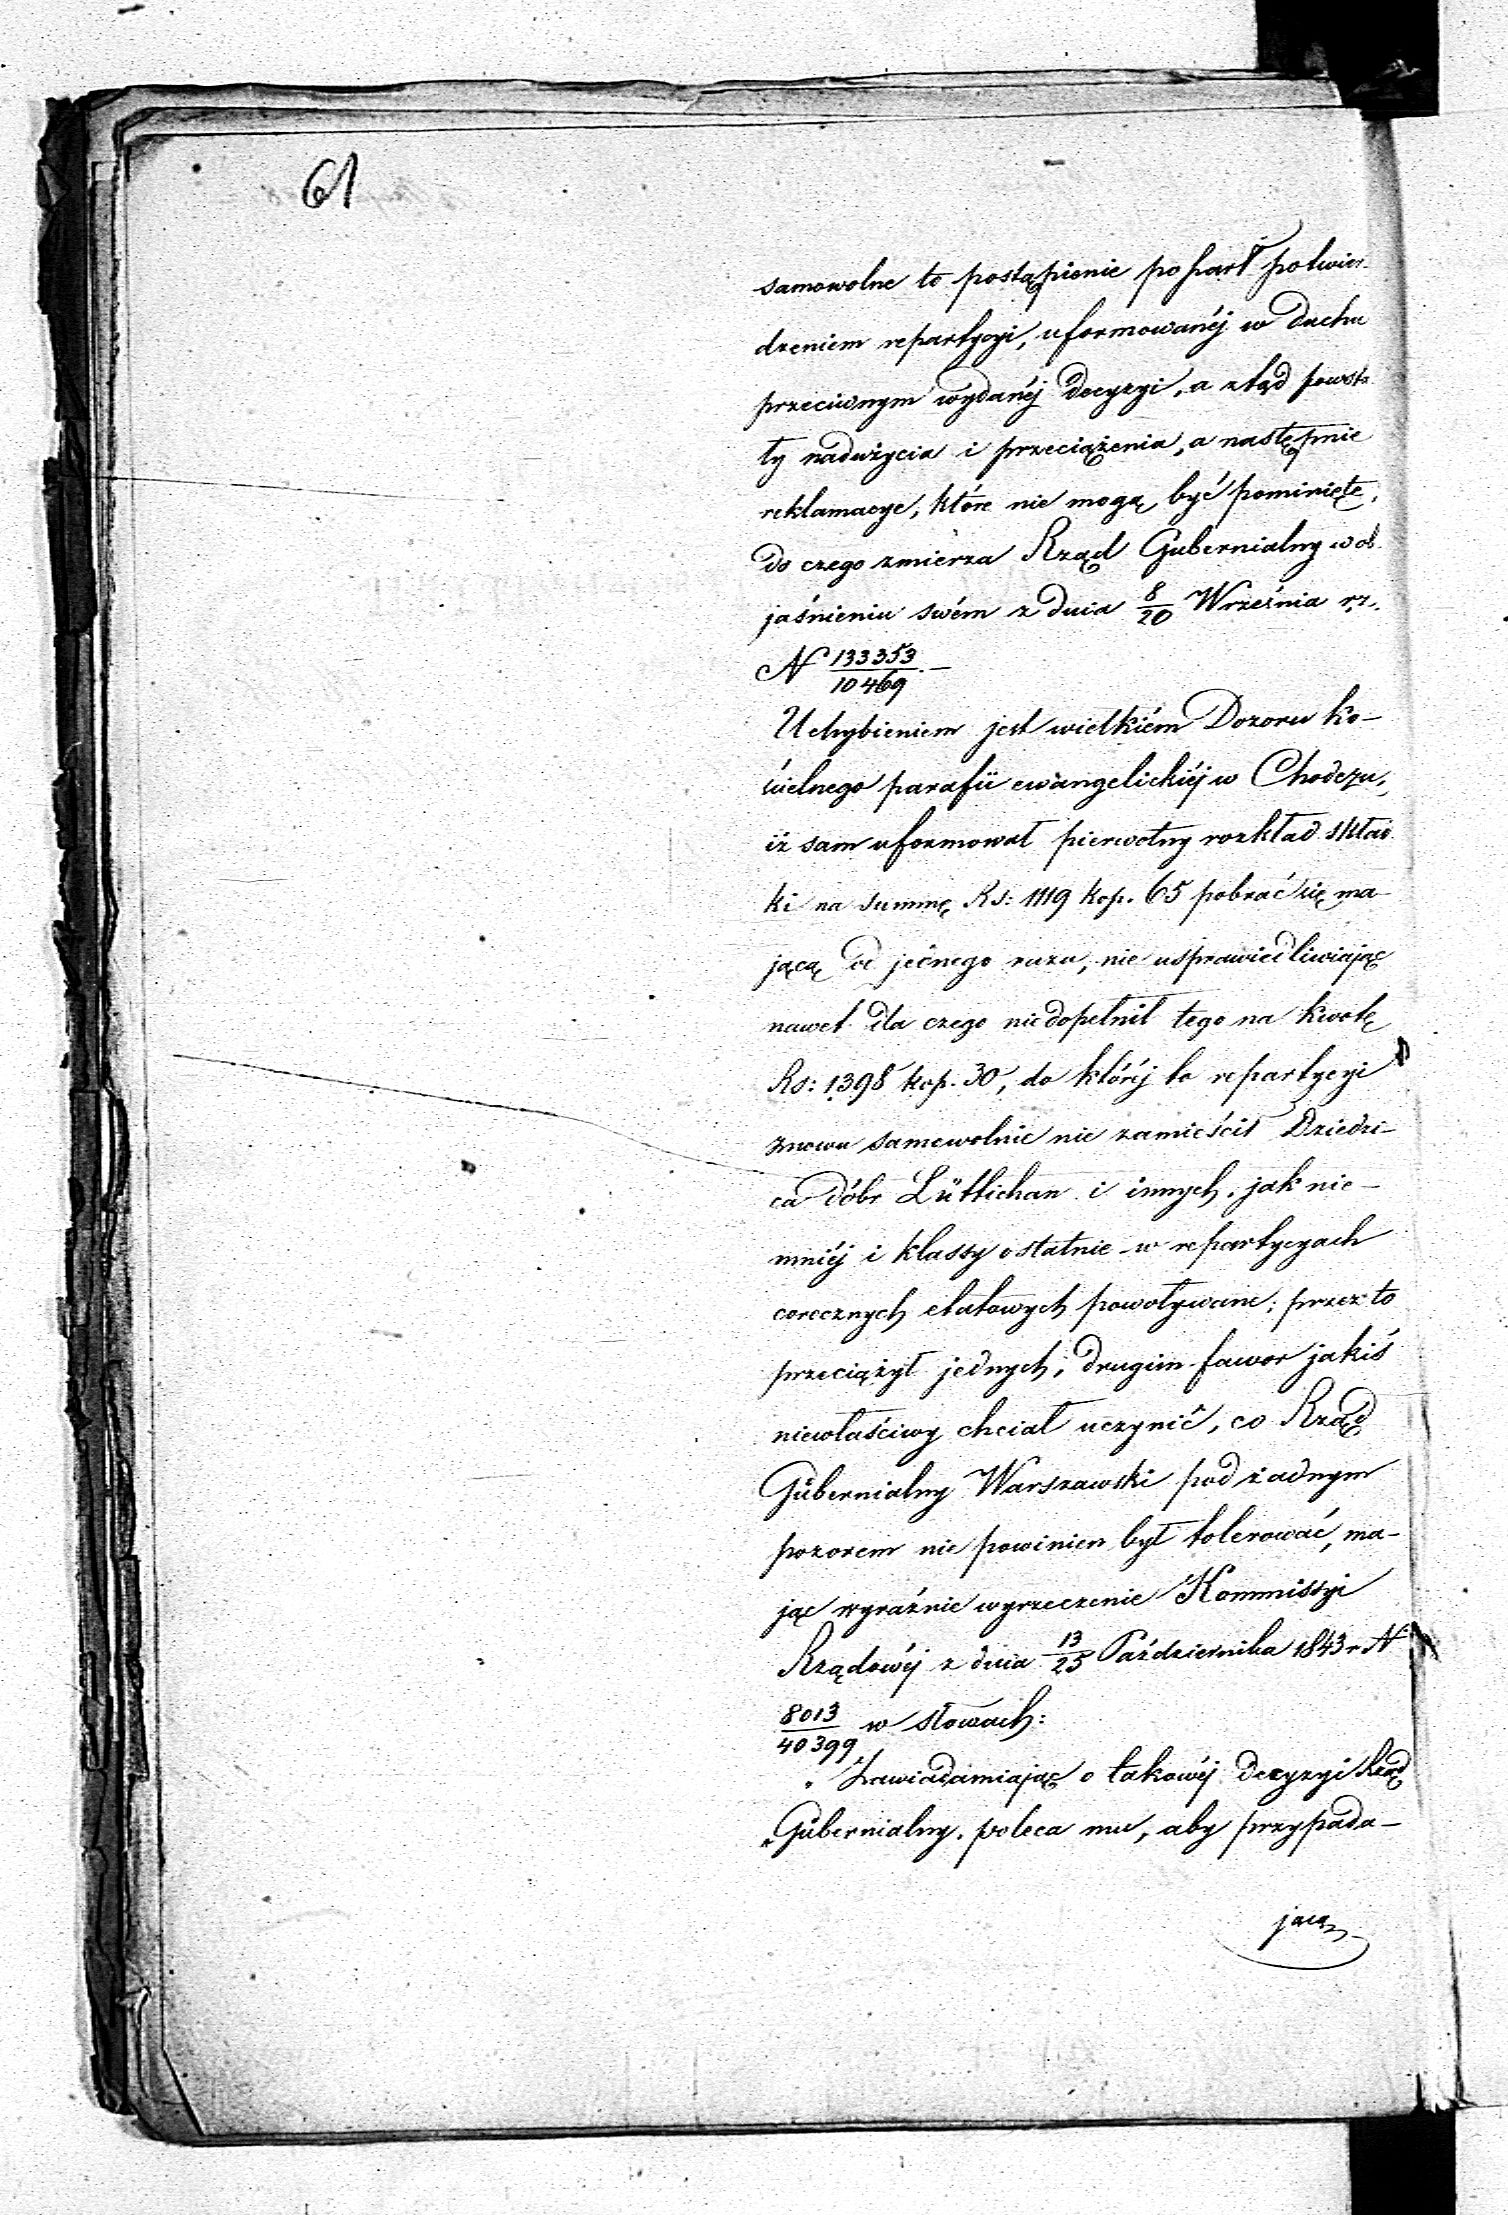 61
samowolne to postąpienie poparł potwier-
dzeniem repartycyi, uformowanéj w duchu
przeciwnym wydanéj decyzyi, a ztąd powsta
ły nadużycia i przeciążenia, a następnie
reklamacye, które nie mogą być pominięte,
do czego zmierza Rząd Gubernialny w ob
jaśnieniu swém z dnia 8/20 Września rz.
N 133353/10469.—
Uchybieniem jest wielkiém Dozoru ko-
ścielnego parafii ewangelickiéj w Chodczu,
iż sam uformował pierwotny rozkład skład
ki na summę Rs: 1119 kop. 65 pobrać się ma-
jącą od jednego razu, nie usprawiedliwiając
nawet dla czego niedopełnił tego na kwotę
Rs: 1398 kop. 30, do któréj to repartycyi
znowu samowolnie nie zamieścił Dziedzi-
ca dóbr Lüttichau i innych, jak nie-
mniéj i klassy ostatnie w repartycyach
corocznych etatowych powoływane; przez to
przeciążył jednych, drugim fawor jakiś
niewłaściwy chciał uczynić, co Rząd
Gubernialny Warszawski pod żadnym
pozorem nie powinien był tolerować, ma-
jąc wyraźnie wyrzeczenie Kommissyi
Rządowéj z dnia 13/25 Października 1843 r N
8013/40399 w słowach:
„Zawiadamiając o takowéj decyzyi Rząd
„Gubernialny, poleca mu, aby przypada-
jącą